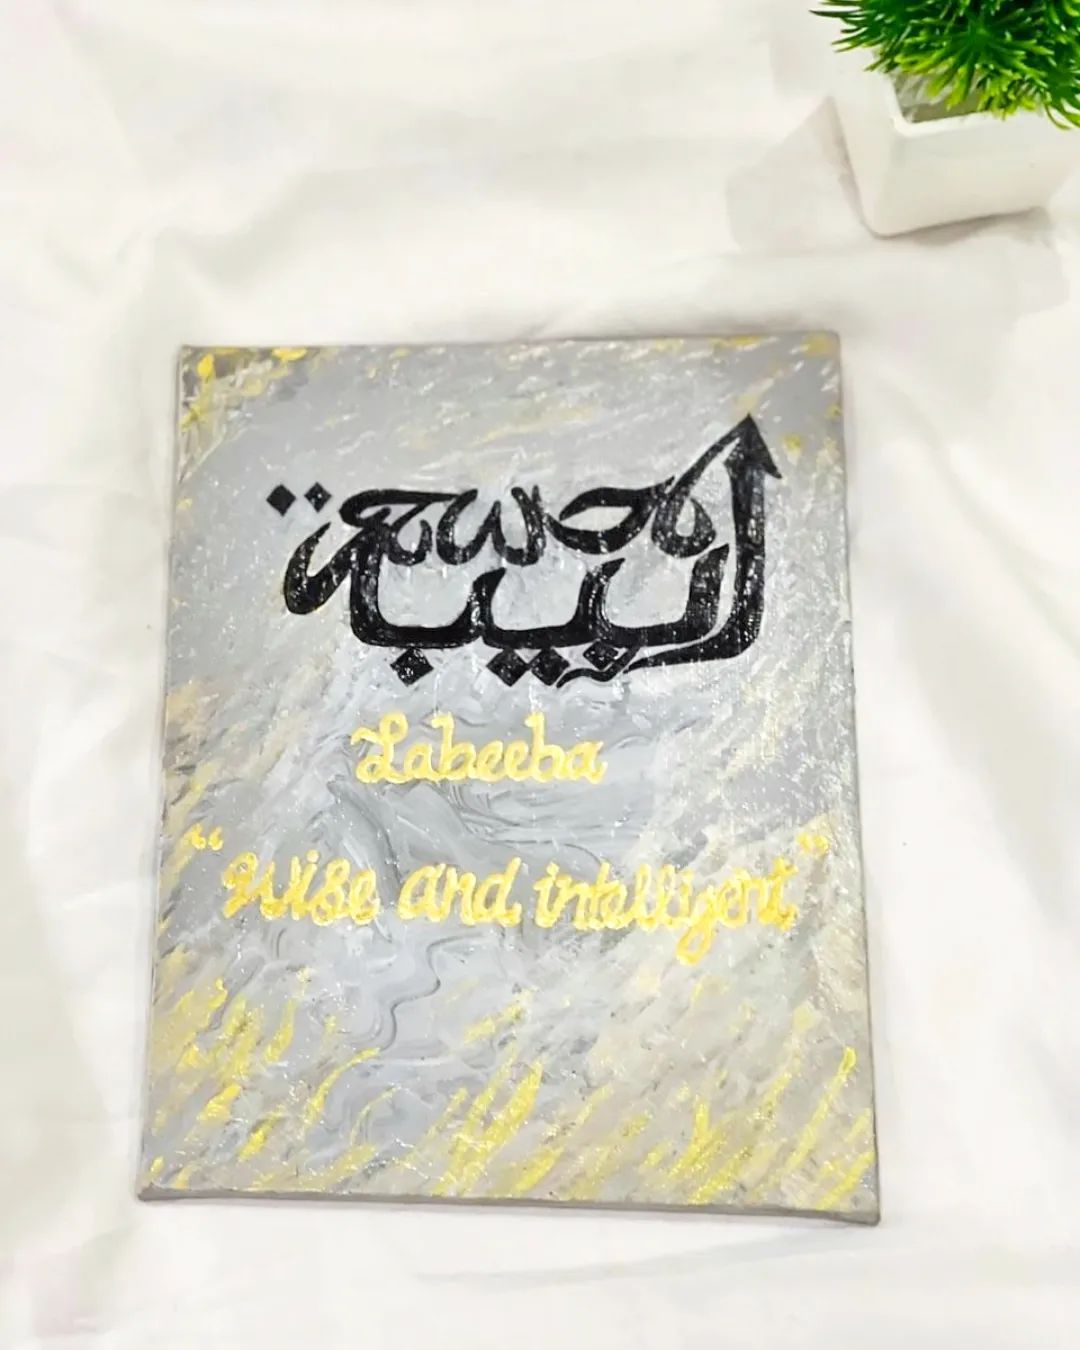 لبيبة
Labeeba
"wise and intelligent"